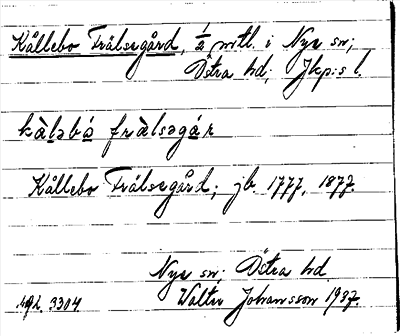 Kållebo Frälsegård, ½ mtl. i Nye sn;
Östra hd; Jkp:s l.
kàləbó fràlsəgár
Kållebo Frälsegård; jb. 1777, 1877.
Nye sn: Östra hd
Acc. 3304. Walter Johansson 1937.